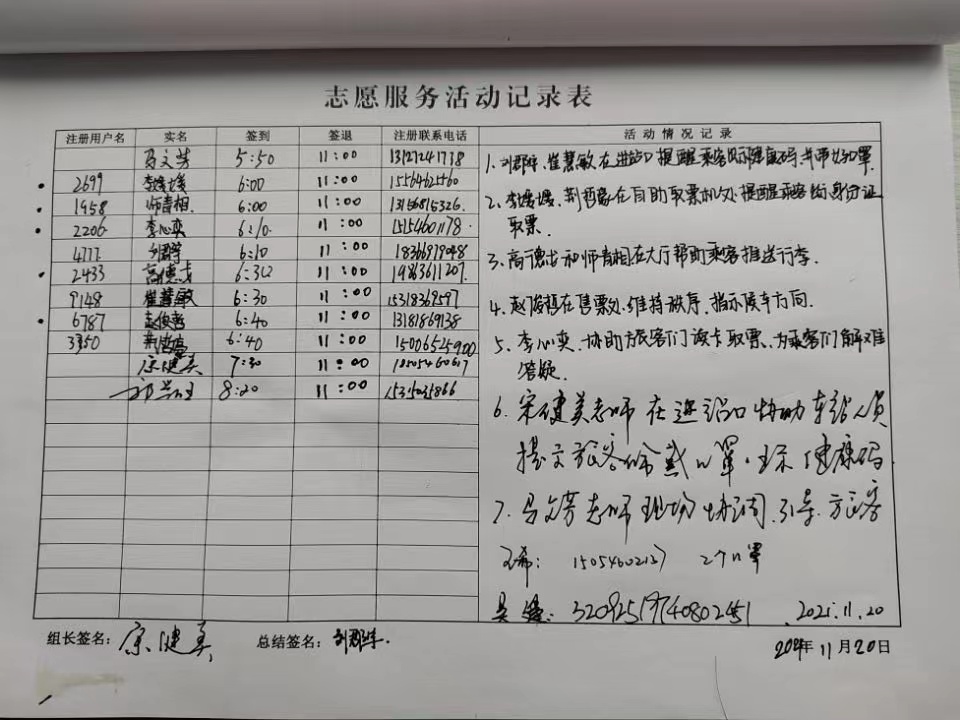 志愿服务活动记录表
注册用户名 实名 签到 签退 注册联系电话 活动情况记录
马文芳 5:50 11:00 13127241738
2699 李媛媛 6:00 11:00 15564625560
1958 师青相 6:00 11:00 13156815326
2206 李心奕 6:10 11:00 15154601178
4777 刘群 6:10 11:00 18366979048
2433 高德才 6:30 11:00 19863611207
9148 崔慧敏 6:30 11:00 15318369597
6787 赵俊哲 6:40 11:00 13181869138
3350 6:40 11:00 15006525900
宋健美 7:30 11:00
8:20 11:00
1、崔慧敏在进站口提醒乘客出示健康码,并带好口罩
2、李媛媛、荆哲豪在自助取票机处,提醒乘客的身份证
取票。
3、高德才和师青相在大厅帮助乘客推送行李。
4、赵俊哲在售票处维持秩序,指示候车方向.
5、李心奕,协助旅客们读卡取票,为乘客们解难
答疑.
6、宋健美老师在进站口协助车站人员
旅客 戴口罩、 健康码
7、马文芳老师现场协调、引导、旅客
2个口罩
320925197408024 2021.11.20
组长签名: 宋健美 总结签名:
2021年11月20日